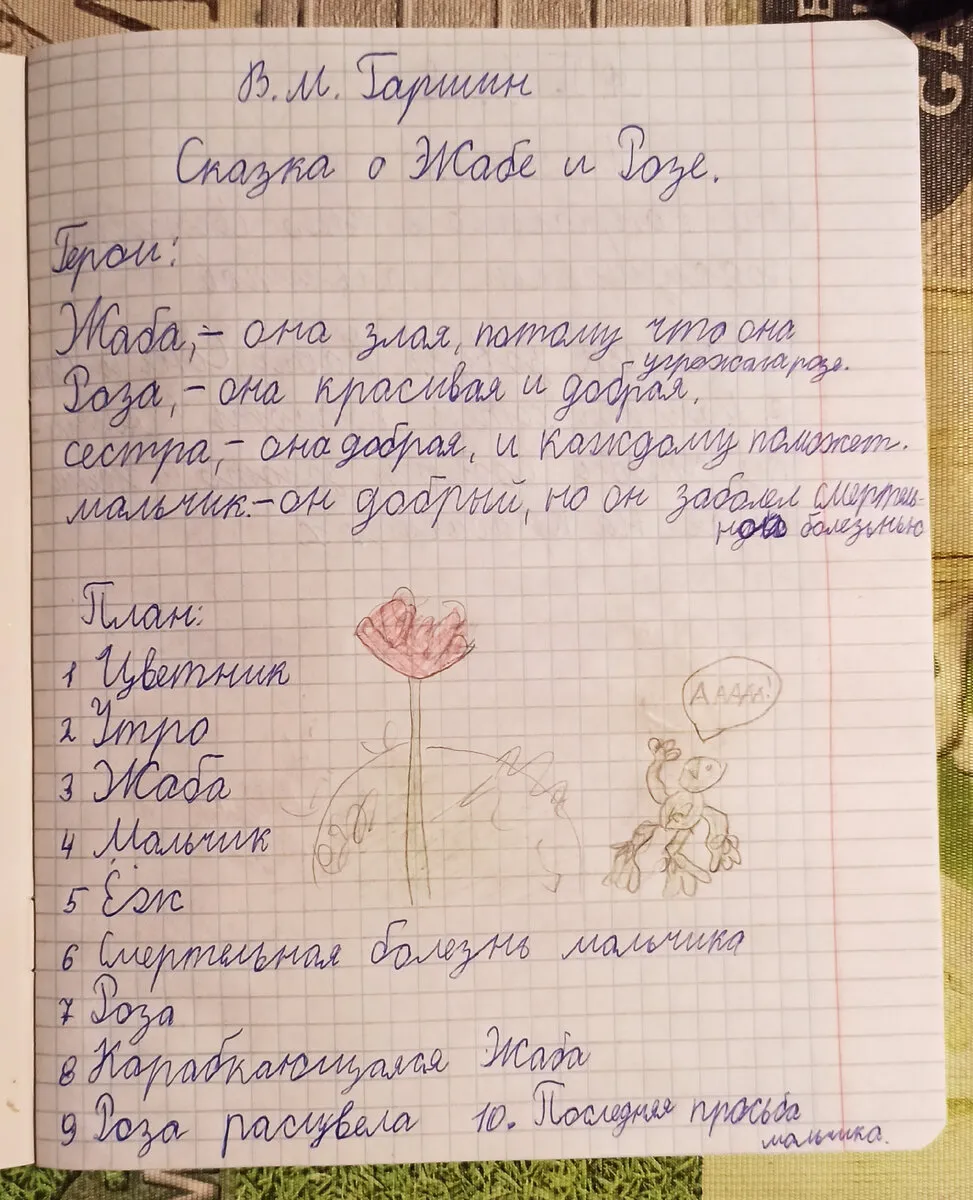 В.М. Гаршин
Сказка о Жабе и Розе.
Герои:
Жаба,- она злая, потому что она
угрожала розе.
Роза,- она красивая и добрая,
сестра,- она добрая, и каждому поможет.
мальчик.-он добрый, но он заболел смертель-
ной болезнью
План:
1 Цветник
2 Утро
3 Жаба
4 Мальчик
АААА!
5 Ёж
6 Смертельная болезнь мальчика
7 Роза
8 Карабкающаяся Жаба
9 Роза расцвела 10. Последняя просьба
мальчика.